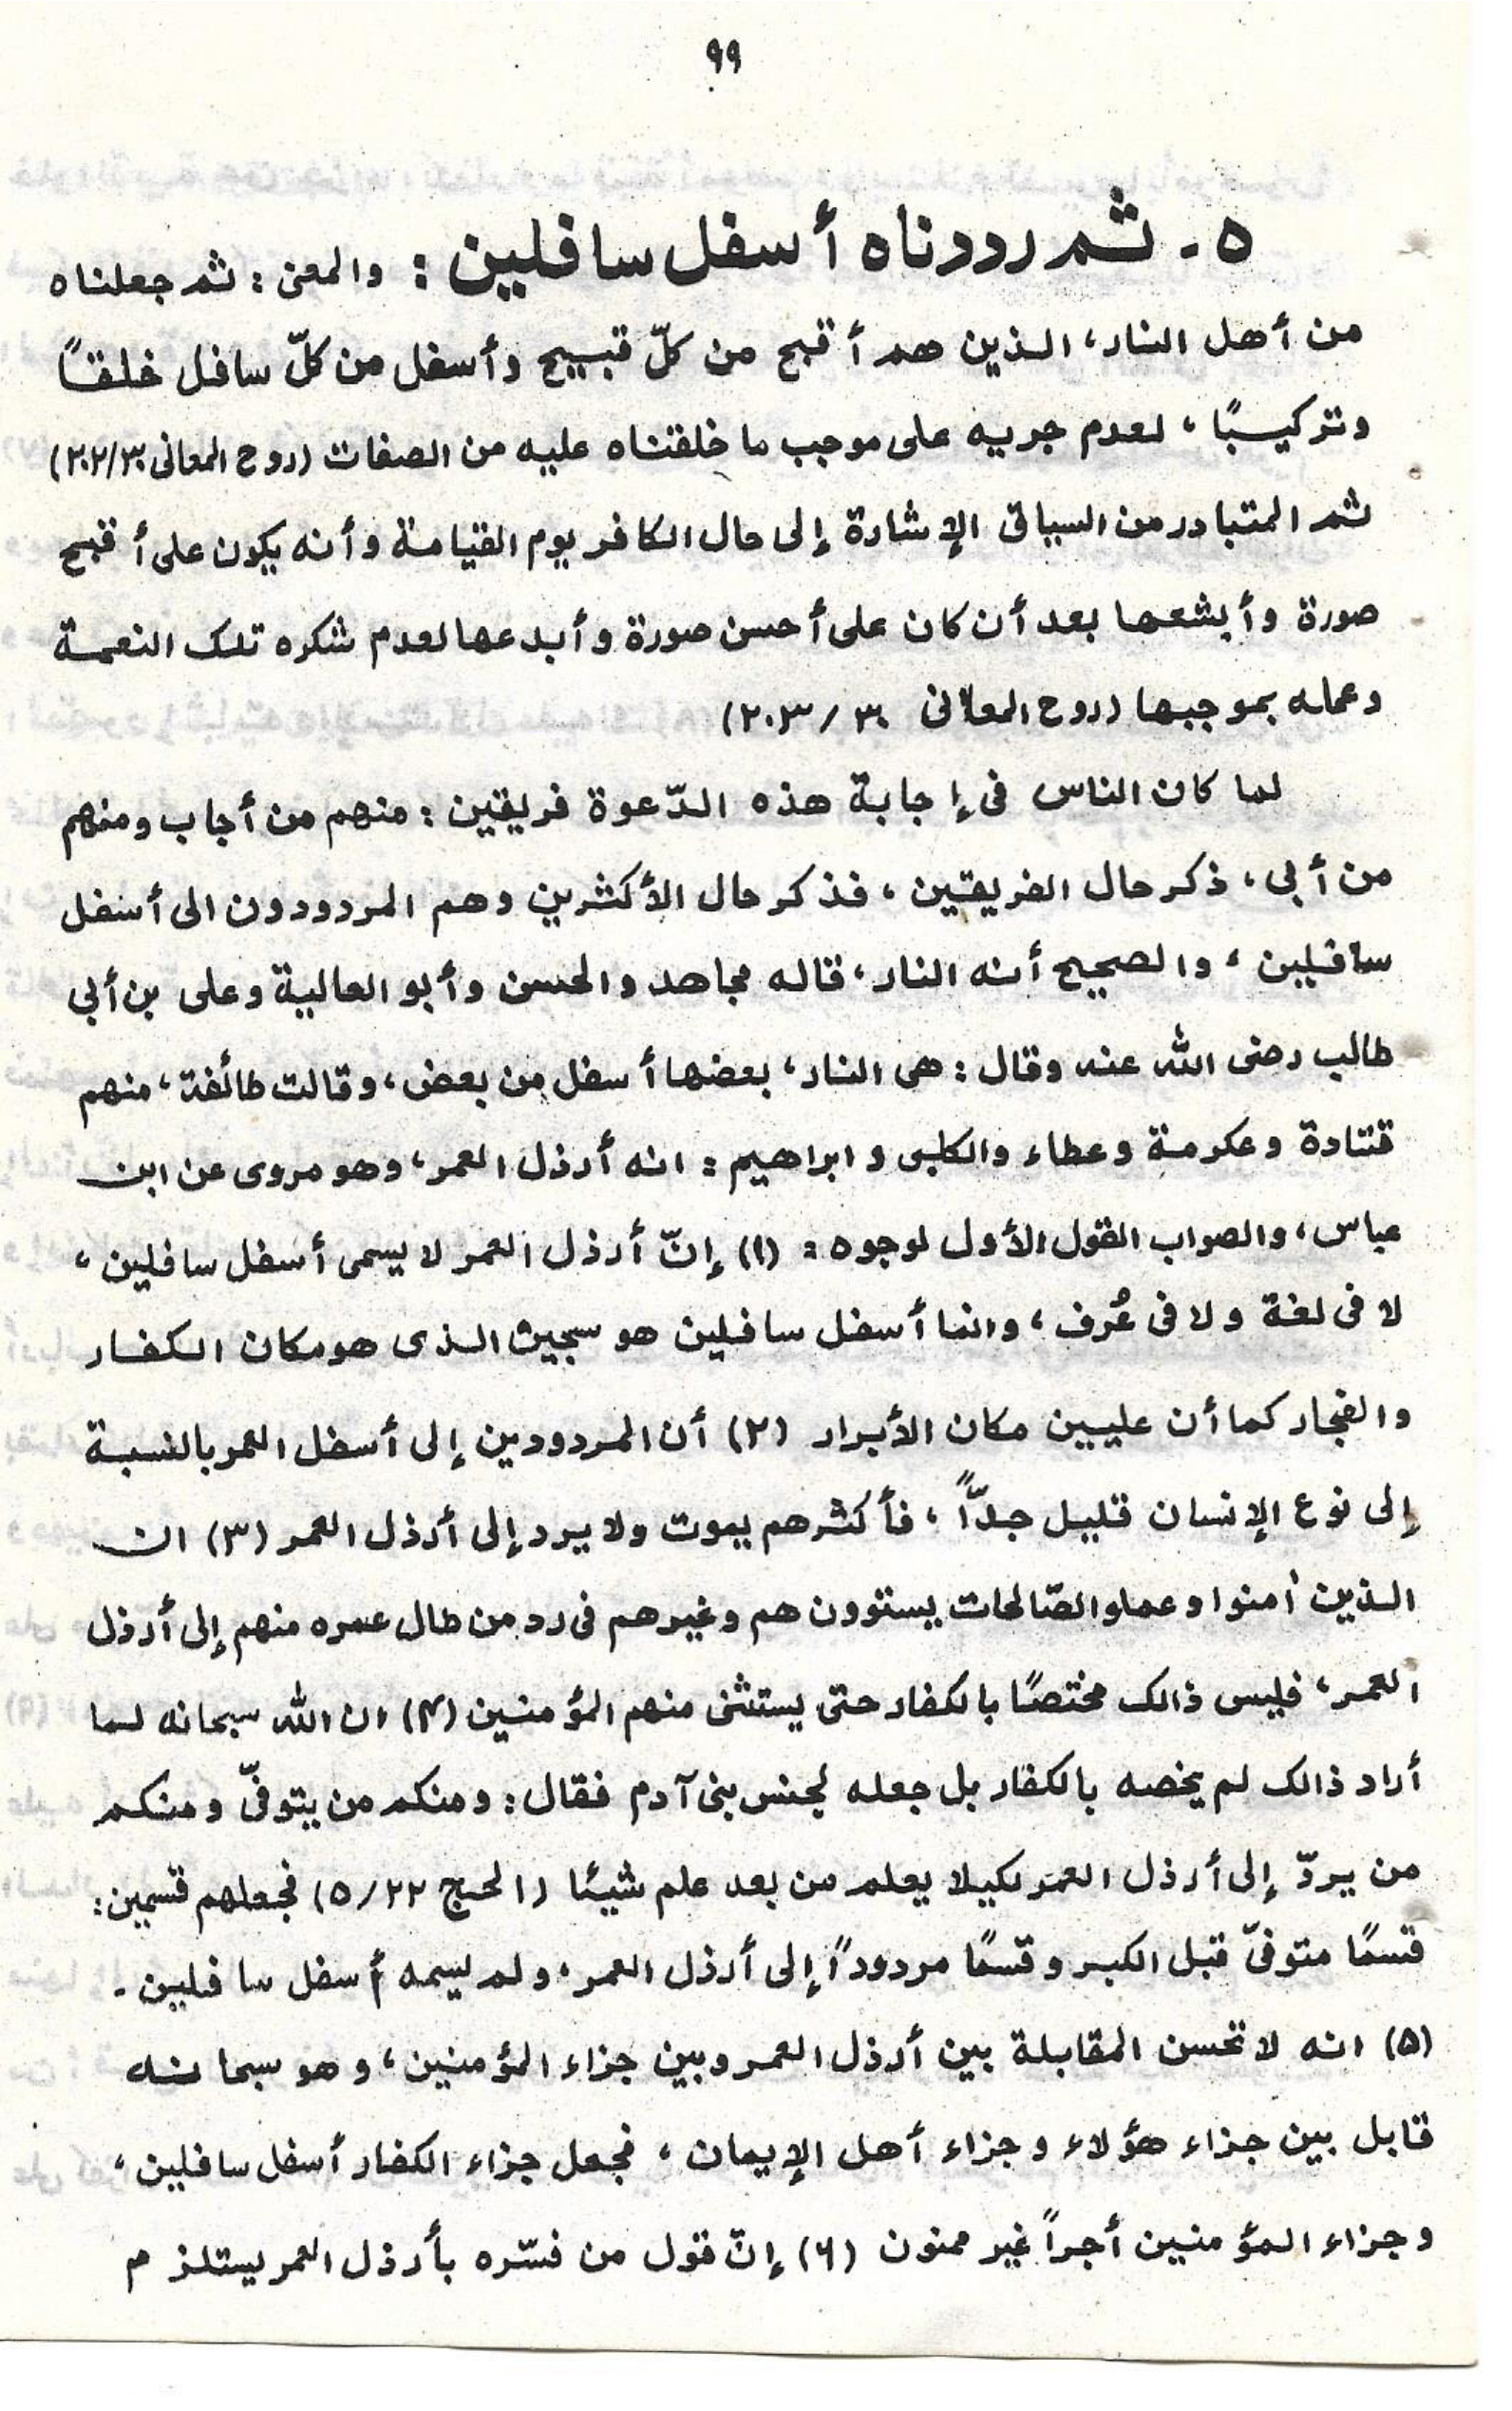 ٩٩
٥ - ثم رددناه أسفل سافلين : والمعنى : ثم جعلناه
من أهل النار، الذين هم أقبح من كلّ قبيح وأسفل من كلّ سافل خلقاً
وتركيبًا، لعدم جريه على موجب ما خلقناه عليه من الصفات (روح المعانى ٢٠٢/٣٠)
ثم المتبادر من السياق الإشارة إلى حال الكافر يوم القيامة وأنه يكون على أقبح
صورة وأبشعها بعد أن كان على أحسن صورة وأبدعها لعدم شكره تلك النعمة
وعمله بموجبها (روح المعانى ٣٠ / ٢٠٣)
لما كان الناس فى إجابة هذه الدّعوة فريقين : منهم من أجاب ومنهم
من أبى، ذكر حال الفريقين، فذكر حال الأكثرين وهم المردودون الى أسفل
سافلين، والصحيح أنه النار، قاله مجاهد والحسن وأبو العالية وعلى بن أبى
طالب رضى الله عنه وقال : هى النار، بعضها أسفل من بعض، وقالت طائفة، منهم
قتادة وعكرمة وعطاء والكلبى و ابراهيم : انه أرذل العمر، وهو مروى عن ابن
عباس، والصواب القول الأول لوجوه : (١) إنّ أرذل العمر لا يسمى أسفل سافلين،
لا فى لغة ولا فى عُرف، وانما أسفل سافلين هو سجين الذى هو مكان الكفار
والفجار كما أن عليين مكان الأبرار (٢) أن المردودين إلى أسفل العمر بالنسبة
إلى نوع الإنسان قليل جدّاً، فأكثرهم يموت ولا يرد إلى أرذل العمر (٣) ان
الذين أمنوا وعملو الصّالحات يستوون هم وغيرهم فى رد من طال عمره منهم إلى أرذل
العمر، فليس ذالك مختصًا بالكفار حتى يستثنى منهم المؤمنين (۴) ان الله سبحانه لما
أراد ذالك لم يخصه بالكفار بل جعله لجنس بنى آدم فقال : ومنكم من يتوفّى ومنكم
من يردّ إلى أرذل العمر لكيلا يعلم من بعد علم شيئا (الحج ٥/٢٢) فجعلهم قسمين :
قسمًا متوفىّ قبل الكبر وقسمًا مردوداً إلى أرذل العمر، ولم يسمه أسفل سافلين -
(۵) انه لا تحسن المقابلة بين أرذل العمر وبين جزاء المؤمنين، وهو سبحانه
قابل بين جزاء هؤلاء وجزاء أهل الإيمان، فجعل جزاء الكفار أسفل سافلين،
وجزاء المؤمنين أجراً غير ممنون (۶) إنّ قول من فسّره بأرذل العمر يستلزم